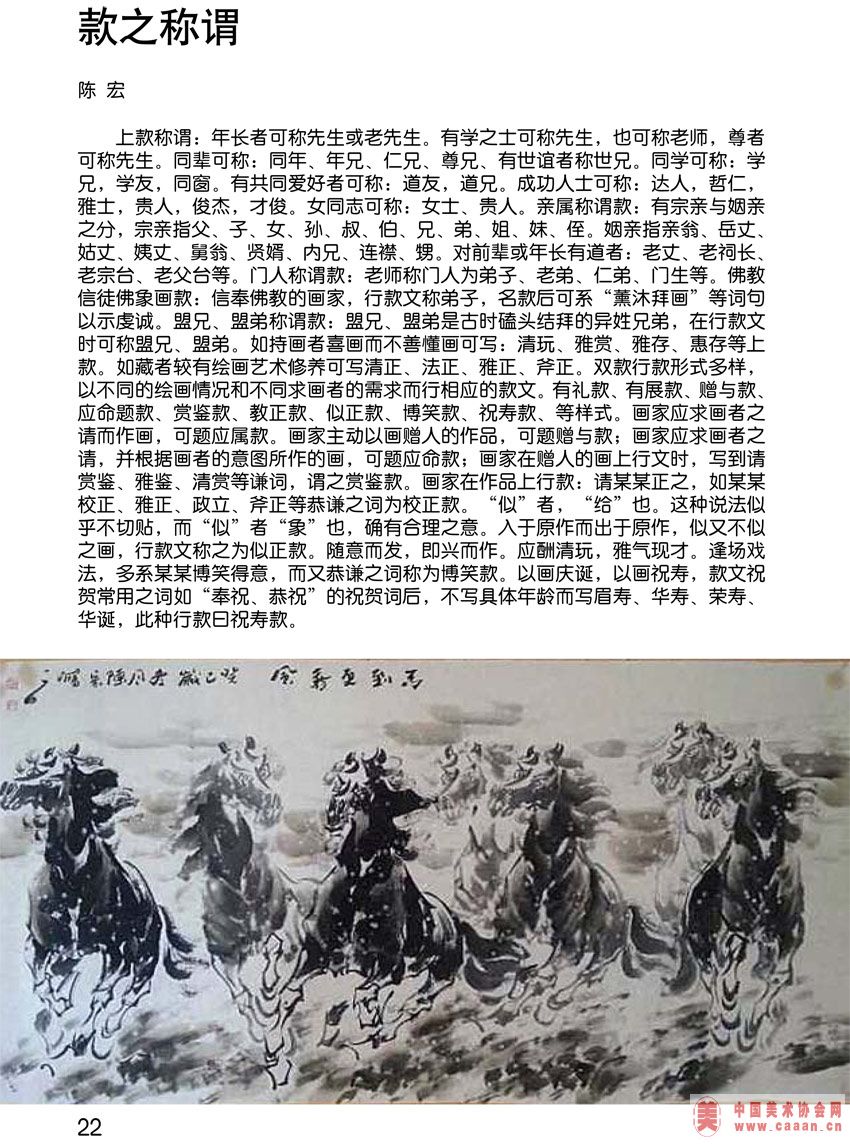 款之称谓
陈 宏
上款称谓：年长者可称先生或老先生。有学之士可称先生，也可称老师，尊者
可称先生。同辈可称：同年、年兄、仁兄、尊兄、有世谊者称世兄。同学可称：学
兄，学友，同窗。有共同爱好者可称：道友，道兄。成功人士可称：达人，哲仁，
雅士，贵人，俊杰，才俊。女同志可称：女士、贵人。亲属称谓款：有宗亲与姻亲
之分，宗亲指父、子、女、孙、叔、伯、兄、弟、姐、妹、侄。姻亲指亲翁、岳丈、
姑丈、姨丈、舅翁、贤婿、内兄、连襟、甥。对前辈或年长有道者：老丈、老祠长、
老宗台、老父台等。门人称谓款：老师称门人为弟子、老弟、仁弟、门生等。佛教
信徒佛象画款：信奉佛教的画家，行款文称弟子，名款后可系“薰沐拜画”等词句
以示虔诚。盟兄、盟弟称谓款：盟兄、盟弟是古时磕头结拜的异姓兄弟，在行款文
时可称盟兄、盟弟。如持画者喜画而不善懂画可写：清玩、雅赏、雅存、惠存等上
款。如藏者较有绘画艺术修养可写清正、法正、雅正、斧正。双款行款形式多样，
以不同的绘画情况和不同求画者的需求而行相应的款文。有礼款、有展款、赠与款、
应命题款、赏鉴款、教正款、似正款、博笑款、祝寿款、等样式。画家应求画者之
请而作画，可题应属款。画家主动以画赠人的作品，可题赠与款；画家应求画者之
请，并根据画者的意图所作的画，可题应命款；画家在赠人的画上行文时，写到请
赏鉴、雅鉴、清赏等谦词，谓之赏鉴款。画家在作品上行款：请某某正之，如某某
校正、雅正、政立、斧正等恭谦之词为校正款。“似”者，“给”也。这种说法似
乎不切贴，而“似”者“象”也，确有合理之意。入于原作而出于原作，似又不似
之画，行款文称之为似正款。随意而发，即兴而作。应酬清玩，雅气现才。逢场戏
法，多系某某博笑得意，而又恭谦之词称为博笑款。以画庆诞，以画祝寿，款文祝
贺常用之词如“奉祝、恭祝”的祝贺词后，不写具体年龄而写眉寿、华寿、荣寿、
华诞，此种行款曰祝寿款。
22
美 中国美术协会网
www.caaan.cn